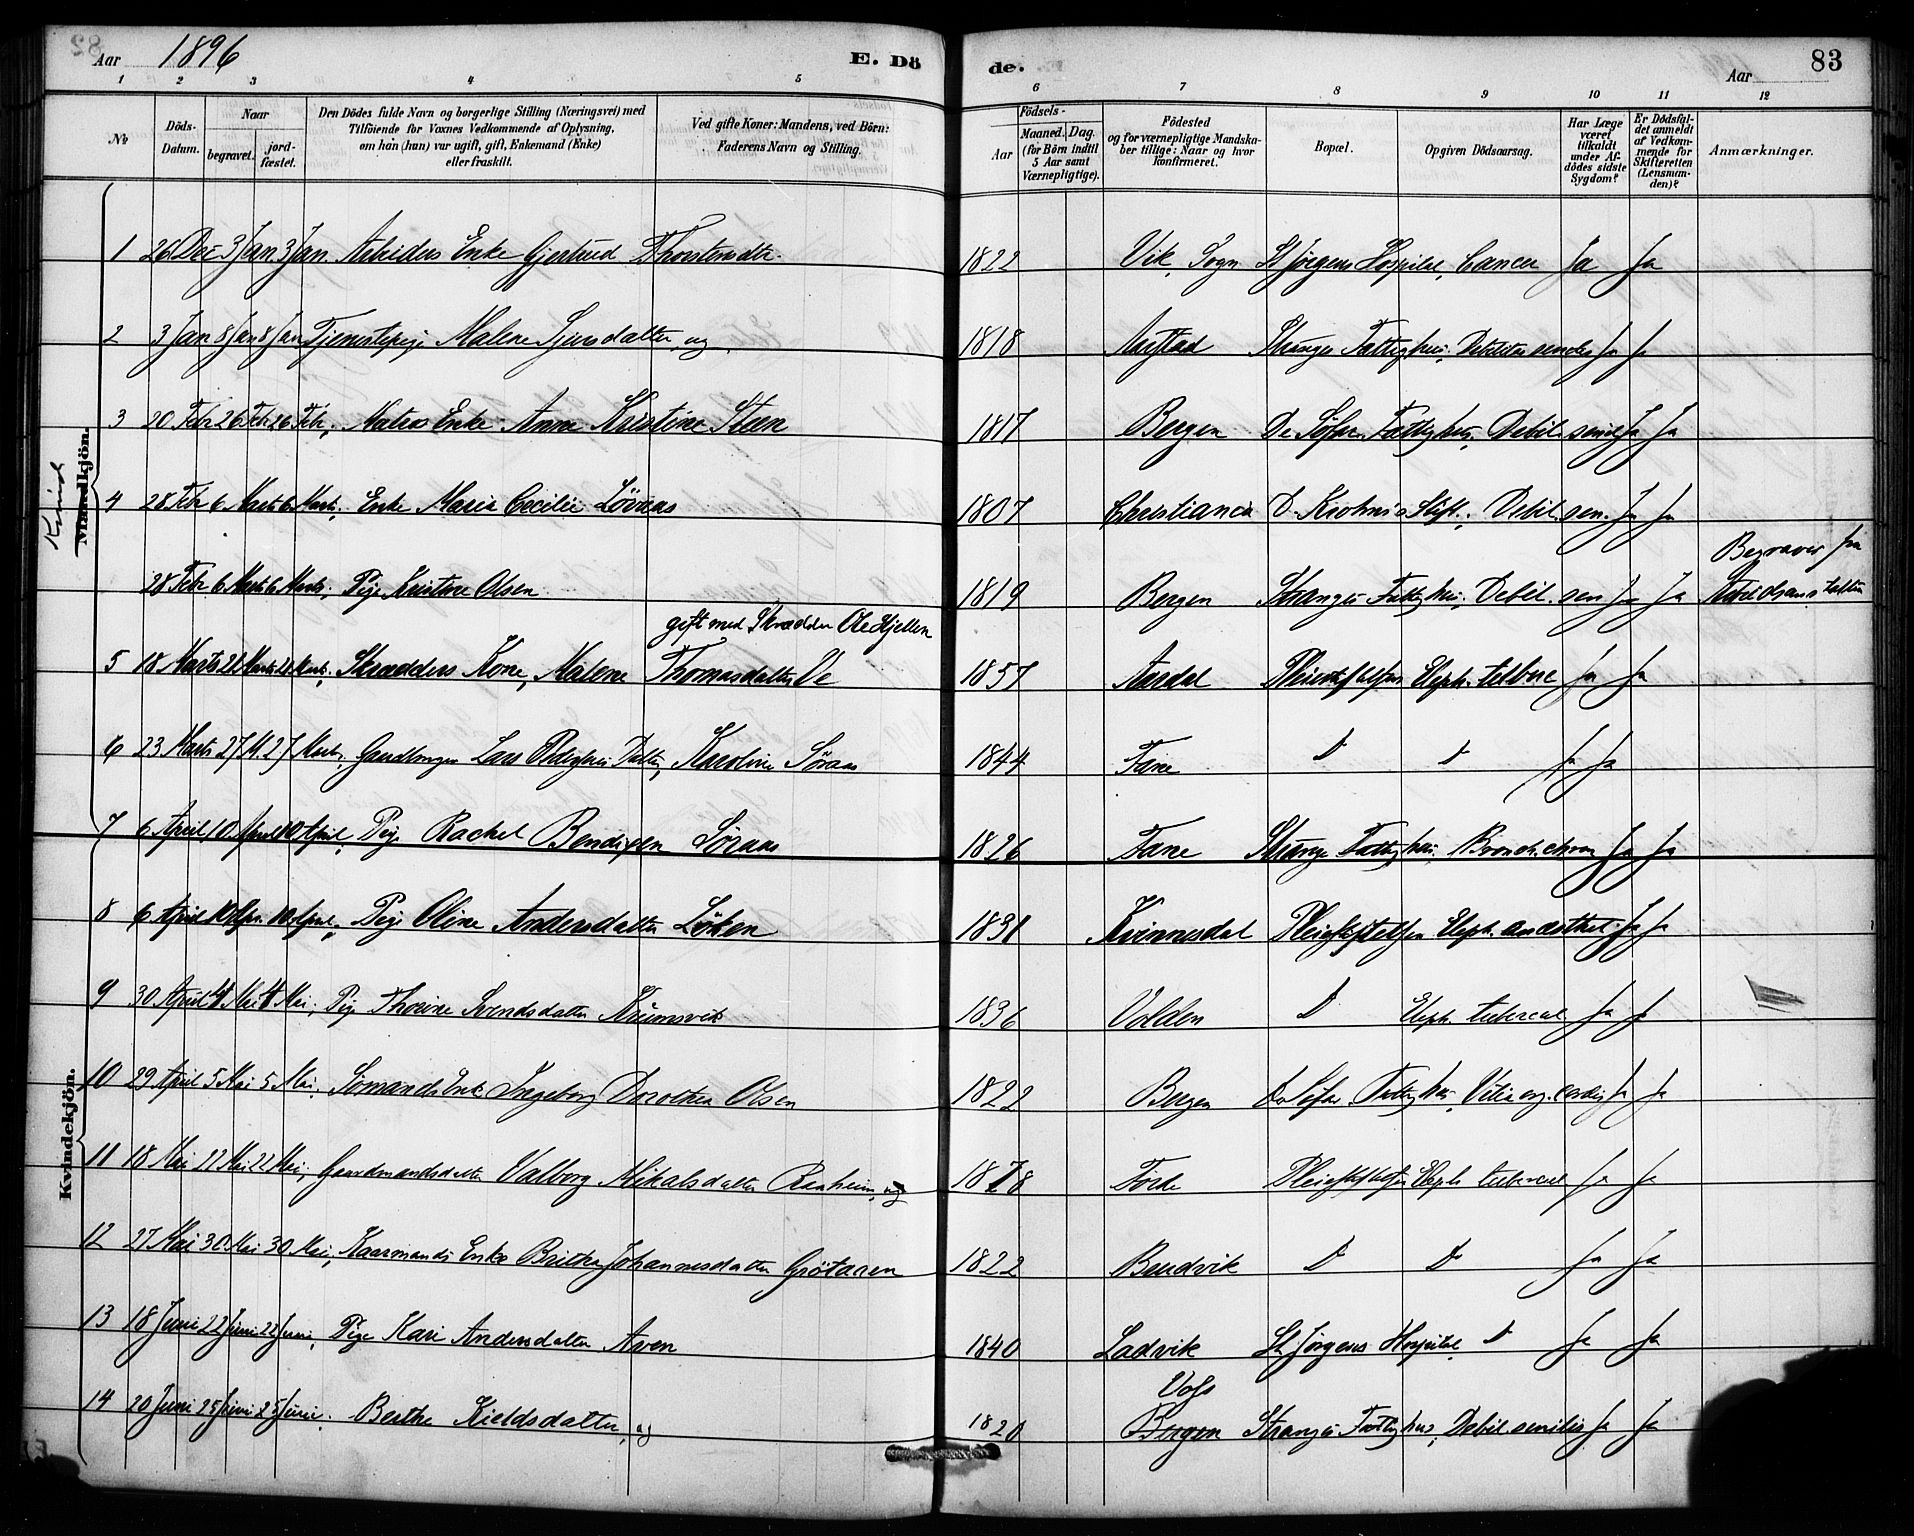 Aar 1896 E. Döde. Aar 83
1 2 3 4 5 6 7 8 9 10 11 12
No
Döds-Datum.
Naar begravet. jordfæstet.
Den Dödes fulde Navn og borgerlige Stilling (Næringsvei) med Tilföiende for Voxnes Vedkommende af Oplysning, om han (hun) var ugift, gift, Enkemand (Enke) eller fraskilt.
Ved gifte Koner: Mandens, ved Börn: Faderens Navn og Stilling.
Födsels-
Aar Maaned. Dag. (for Börn indtil 5 Aar samt Værnepligtige).
Födested og for værnepligtige Mandskaber tillige: Naar og hvor konfirmeret.
Bopæl.
Opgiven Dödsaarsag.
Har Læge været tilkaldt under Afdödes sidste Sygdom?
Er Dödsfaldet anmeldt af Vedkommende for Skifteretten (Lensmanden)?
Anmærkninger.
Mandkjön.
Kvind
1 26 Dec 3 Jan. 3 Jan. Arbeiders Enke Gjertrud Thorstensdtr. 1822 Vik, Sogn St Jørgens Hospital, Cancer Ja Ja
2 3 Jan 8 Jan 8 Jan Tjenestepige Malene Sjursdatter, ug. 1818 Fattighus, Debilitas senilis Ja Ja
3 20 Febr 26 Febr 26 Febr, Enke Anne Kristine Steen 1817 Bergen Fattighus, Debil. senil Ja Ja
4 28 Febr 6 Marts 6 Marts, Enke Maria Cecilie Løvaas 1807 Christiania D. Krohns Stift., Debil. sen. Ja Ja
28 Febr 6 Marts 6 Marts, Pige Kristine Olsen 1819 Bergen Stranges Fattighus, Debil. sen Ja Ja Begravet fra
gift med Skrædder Ole Hjellen
5 18 Marts 21 Marts 21 Marts, Skrædders Kone, Malene Thomasdatter 1857 Aardal Pleiestiftelsen Eleph. tuberc Ja Ja
6 23 Marts 27 M. 27 Marts, Lars Datter, Karoline Søraas 1844 Fane D D Ja Ja
7 6 April 10 April 10 April, Pige Rachel Bendixen Søraas 1826 Fane Stranges Fattighus, Bronch. chron Ja Ja
8 6 April 10 Apr. 10 April, Pige Oline Andersdatter Løken 1831 Kvinnesdal Pleiestiftelsen Eleph. anæsthet. Ja Ja
Kvindekjön.
9 30 April 4 Mai 4 Mai, Pige Thorine Svendsdatter 1836 Volden D Eleph. tubercul Ja Ja
10 29 April 5 Mai 5 Mai, Sømands Enke Ingeborg Dorothea Olsen 1822 Bergen Fattighus, Vitia org. cordis Ja Ja
11 18 Mai 22 Mai 22 Mai, Gaardmandsdatter Valborg Mikalsdatter, ug 1878 Førde Pleiestiftelsen Eleph tubercul Ja Ja
12 27 Mai 30 Mai 30 Mai, Kaarmands Enke Britha Johannesdatter 1822 D D Ja Ja
13 18 Juni 22 Juni 22 Juni, Pige Kari Andersdatter Aven 1840 Ladvik St Jørgens Hospital, D Ja Ja
14 20 Juni 25 Juni 25 Juni, Berthe Kieldsdatter, ug 1820 Voss Bergen Stranges Fattighus, Debil. senilis Ja Ja